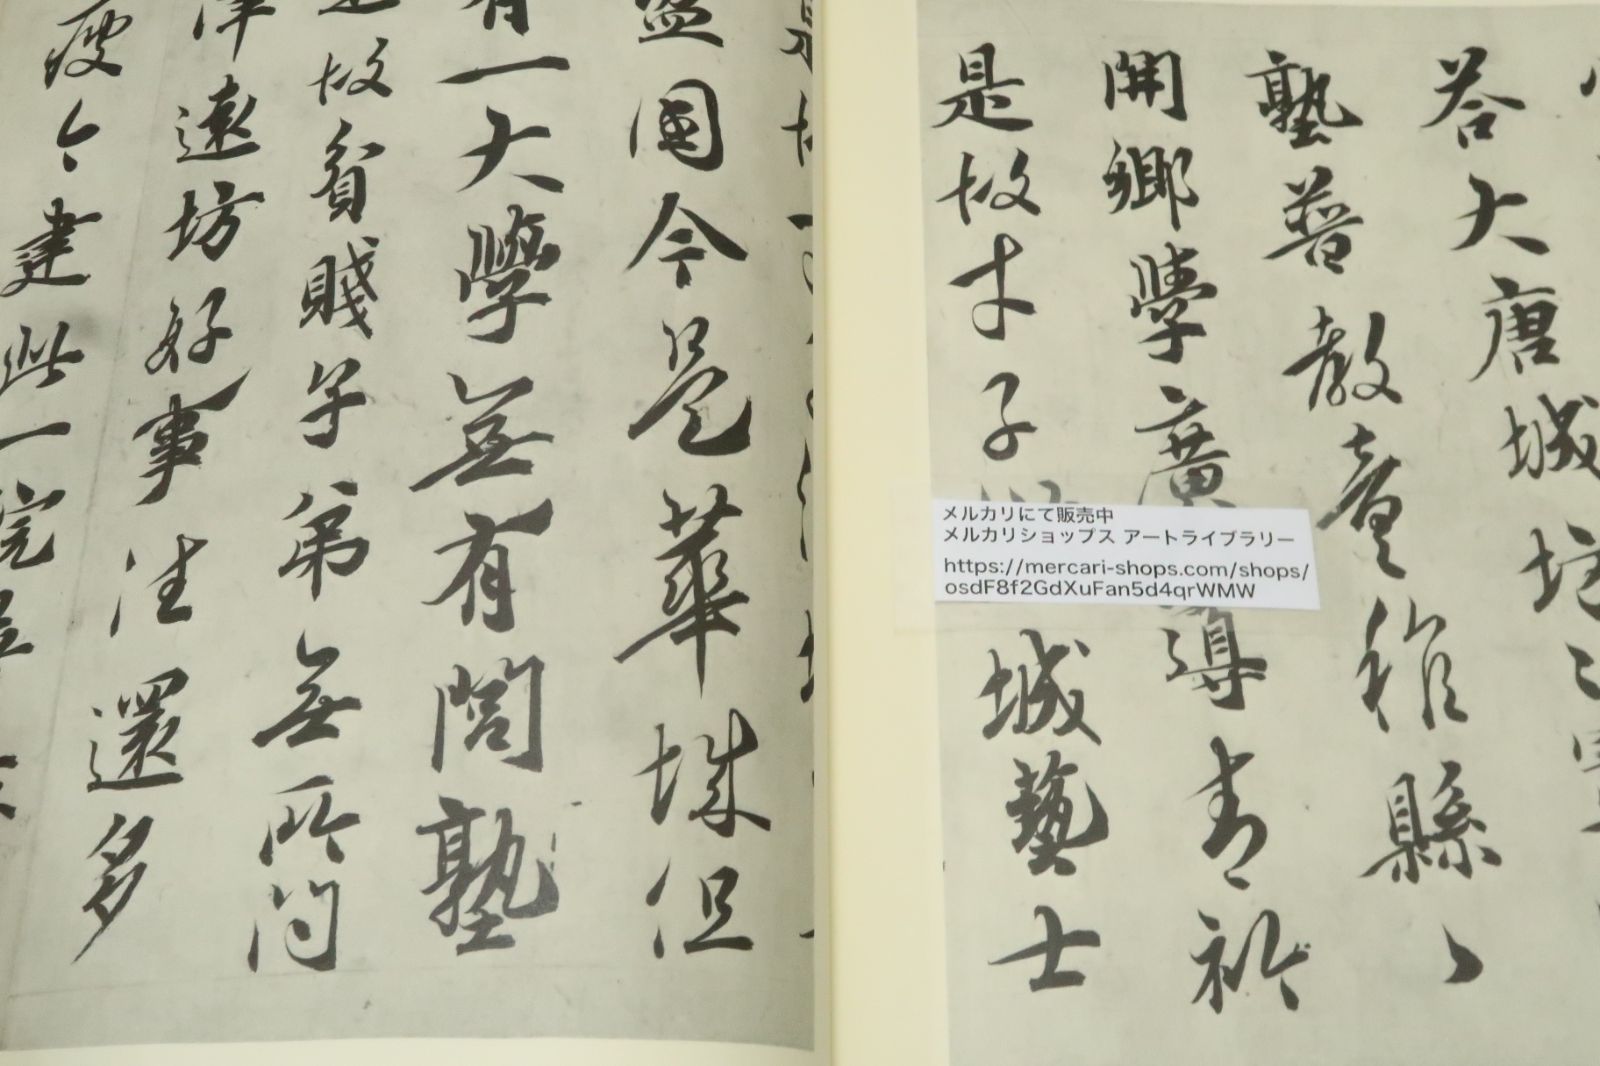 答大唐城坊々
塾普教童稚縣々
開鄉學廣導青衿
是故才子
城藝士
盈国今是華城但
有一大學無有閭塾
是故貧賤子弟無所問
津遠坊好事往還多
疲今建此一院
メルカリにて販売中
メルカリショップス アートライブラリー
https://mercari-shops.com/shops/
osdF8f2GdXuFan5d4qrWMW